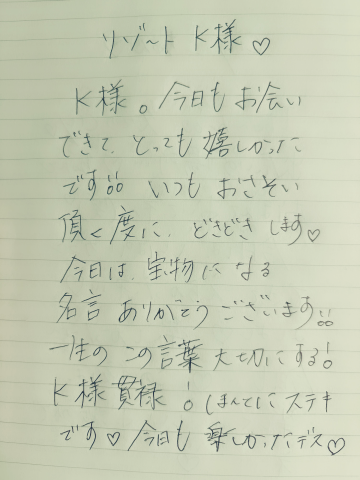 リゾート K様♡
K様。今日も お会い
できて、とっても 嬉しかった
です!! いつも おさそい
頂く度に、どきどき します♡
今日は、宝物に なる
名言 ありがとう ございます!!
一生の この言葉 大切に する!
K様 貫禄! ほんとに ステキ
です♡ 今日も 楽しかったデス♡